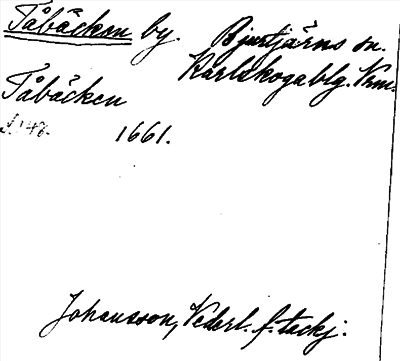 Tåbäcken by. Bjurtjärns sn.
Karlskogablg. Vrm.
Tåbäcken
s. 148. 1661.
Johansson, Vederl. f. tackj.